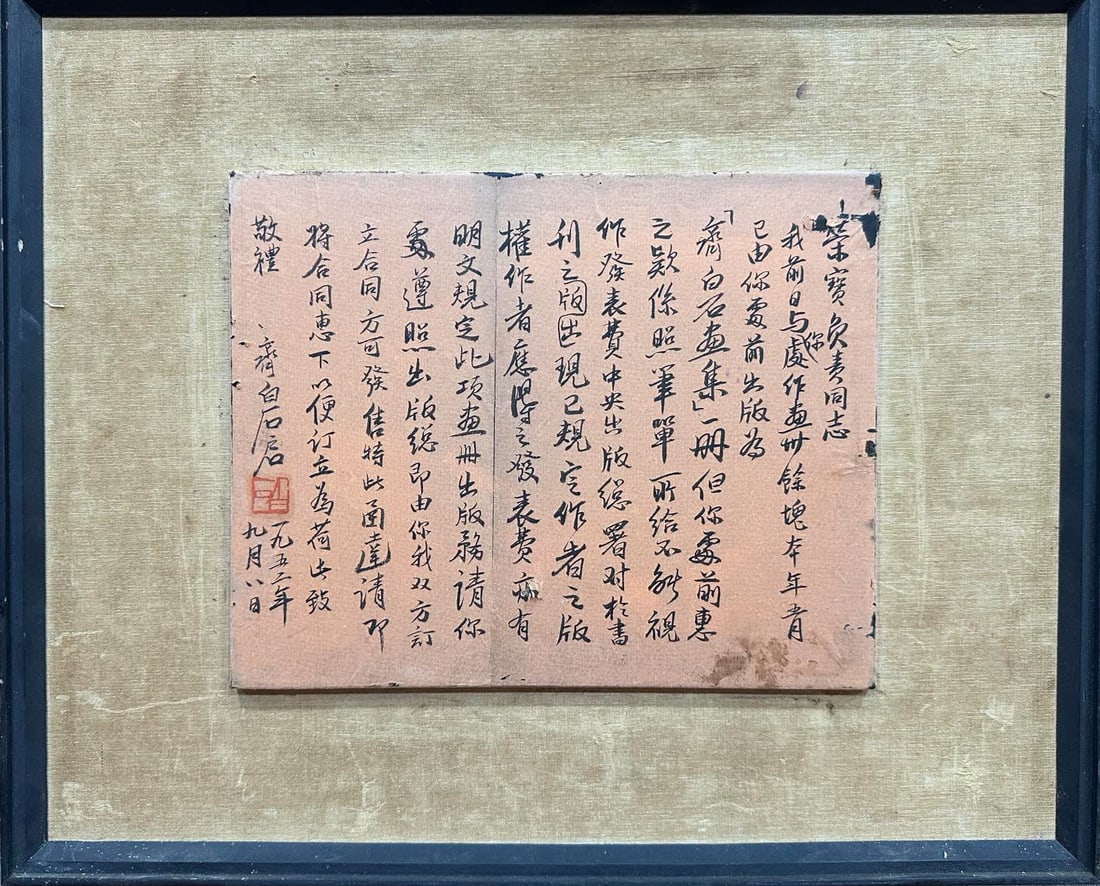 榮寶負責同志
我前日与你處作画卅餘塊本年肯
已由你處前出版為
「齊白石画集」一册但你處前惠
之欵係照筆單所给不能視
作發表費中央出版總署对於書
刊之版囯現已規定作者之版
權作者應得之發表費亦有
明文規定此项画册出版務请你
處遵照出版總即由你我双方訂
立合同方可發售特此函達请即
將合同惠下以便订立為荷此致
敬禮
齊白石启
一九五二年
九月八日